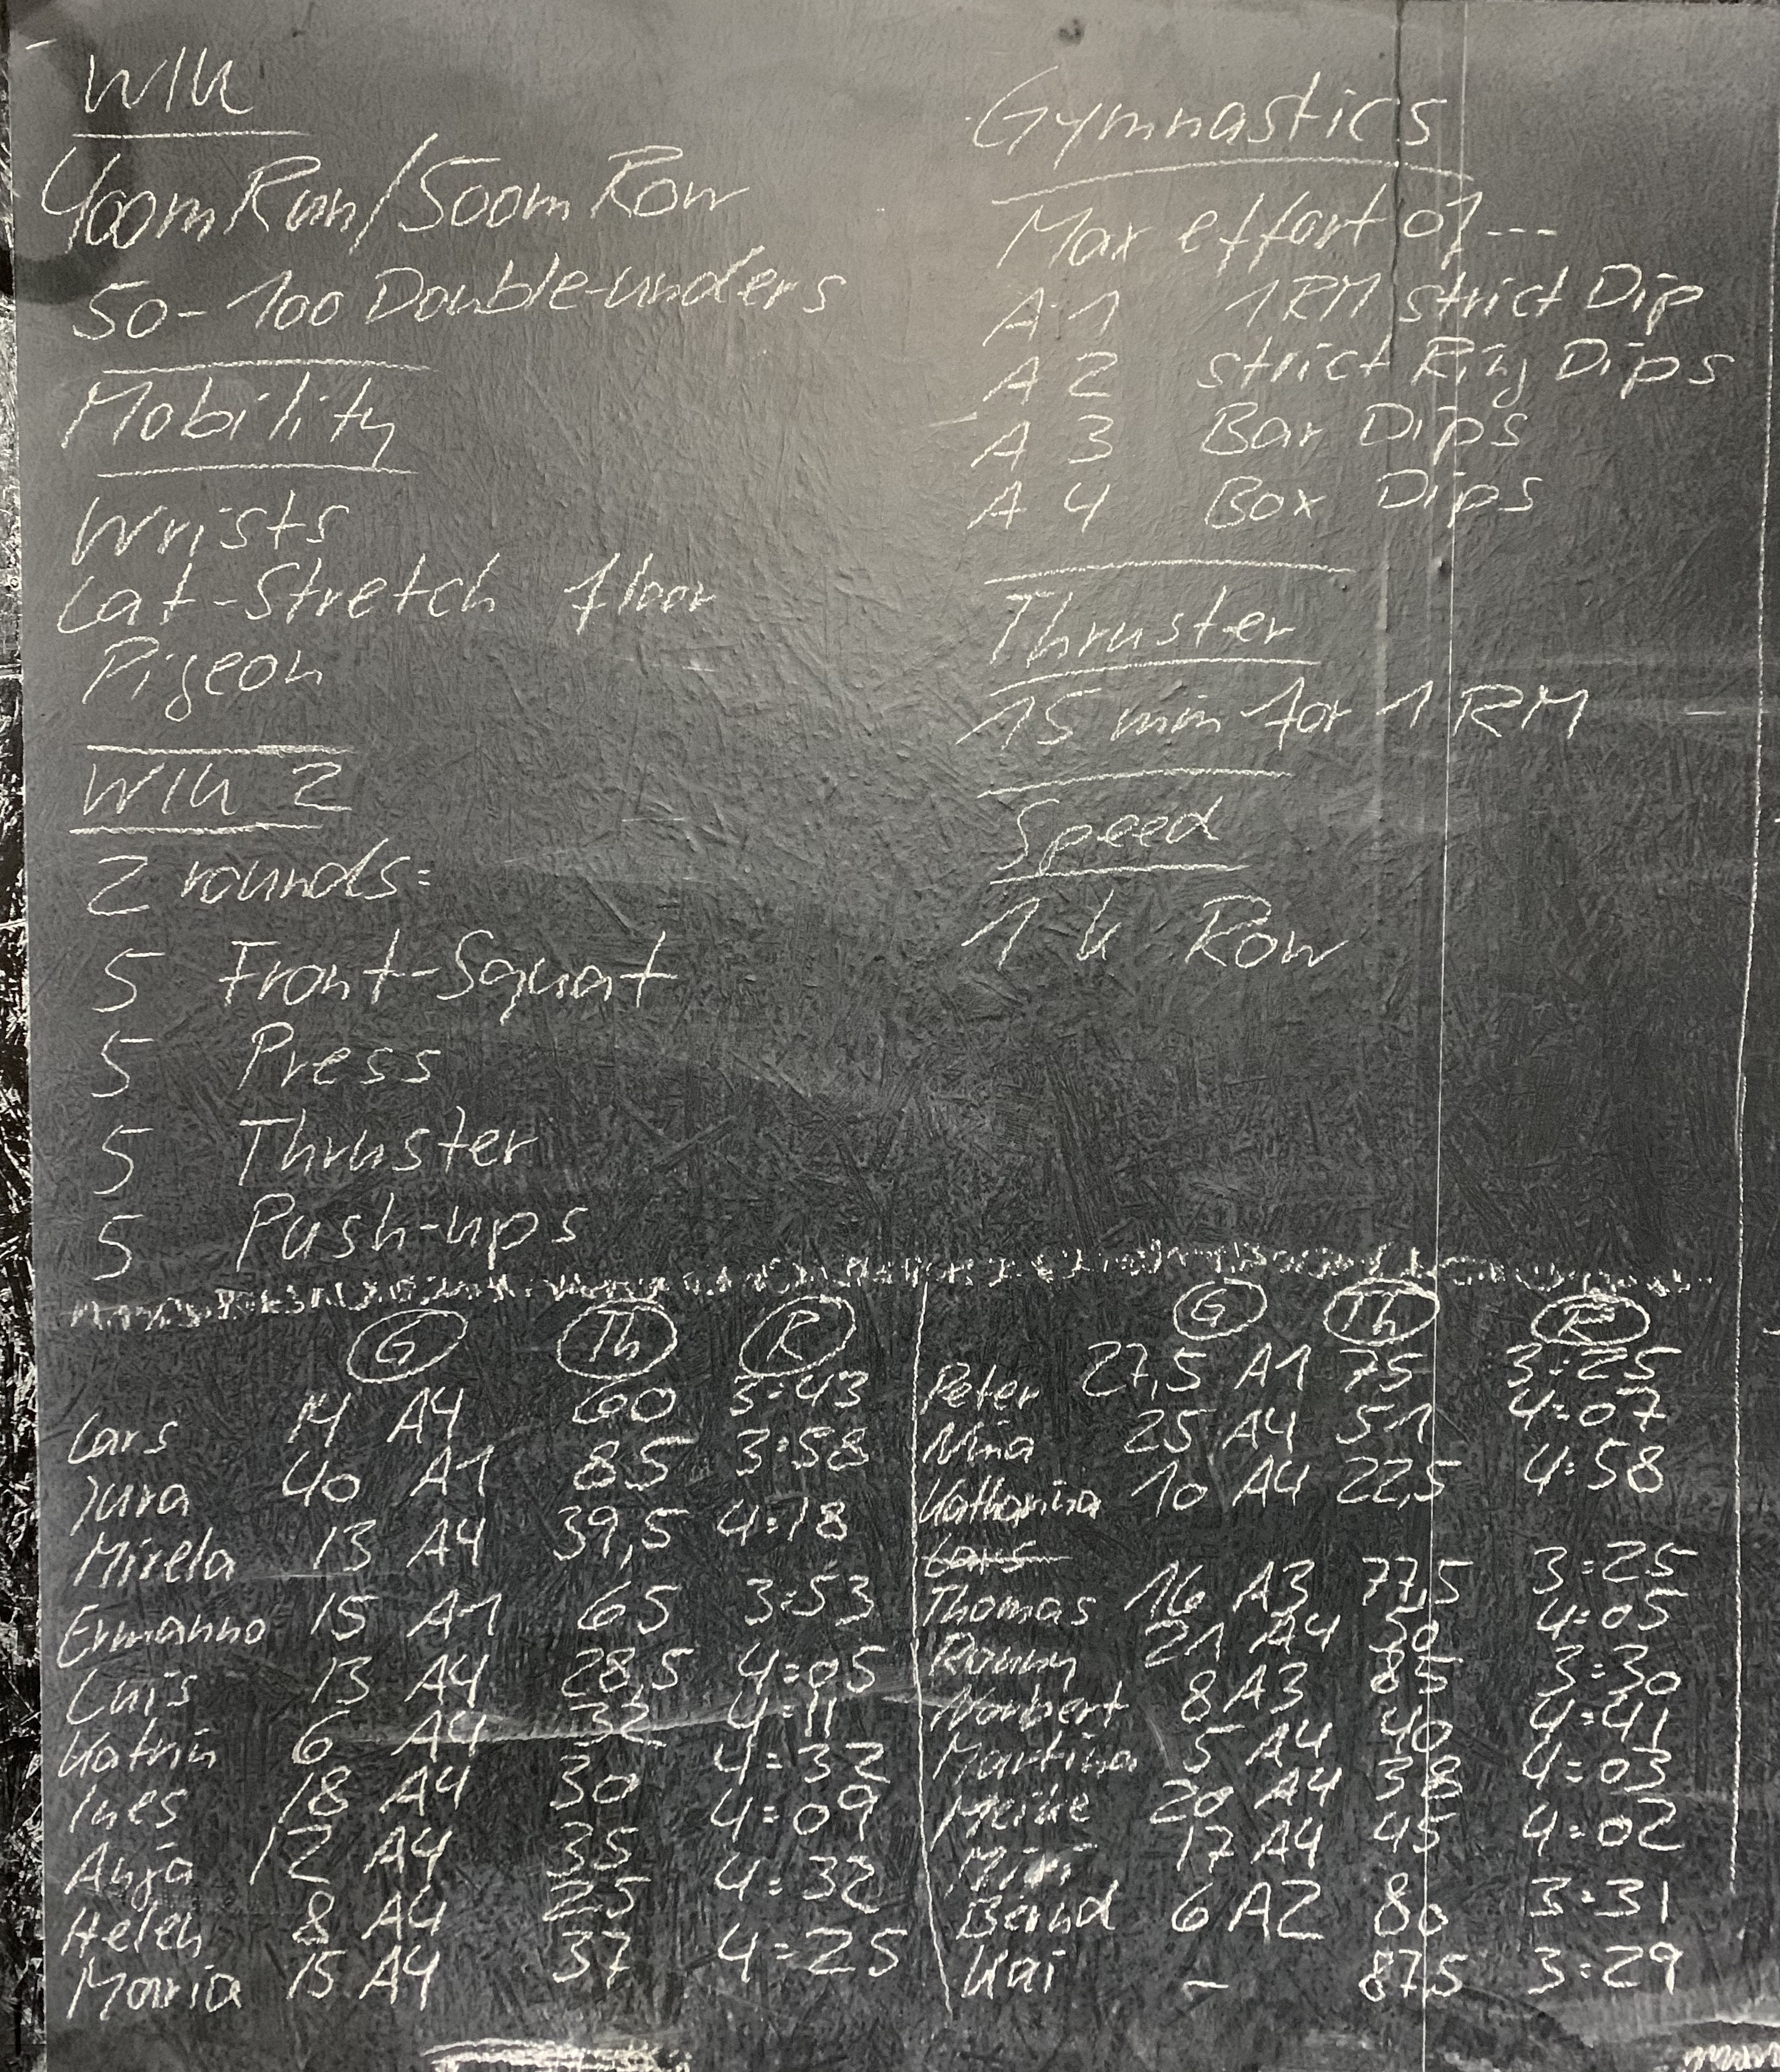 W/U
400m Run/500m Row
50-100 Double-unders
Mobility
Wrists
Lat-Stretch floor
Pigeon
W/U 2
2 rounds:
5 Front-Squat
5 Press
5 Thruster
5 Push-ups
Gymnastics
Max effort of---
A1 1RM strict Dip
A2 strict Ring Dips
A3 Bar Dips
A4 Box Dips
Thruster
15 min for 1 RM
Speed
1k Row
G Th R
Lars 14 A4 60 3:43
Jura 40 A1 85 3:58
Mirela 13 A4 39,5 4:18
Ermanno 15 A1 65 3:53
Luis 13 A4 28,5 4:05
Katrin 6 A4 32 4:11
Ines 18 A4 30 4:32
Anja 12 A4 35 4:09
Helen 8 A4 25 4:32
Maria 15 A4 37 4:25
G Th R
Peter 27,5 A1 75 3:25
Nina 25 A4 51 4:07
Katharina 10 A4 22,5 4:58
Lars
Thomas 16 A3 77,5 3:25
Ronny 21 A4 50 4:05
Norbert 8 A3 85 3:30
Martina 5 A4 40 4:41
Meike 20 A4 38 4:03
Miri 17 A4 45 4:02
Bernd 6 A2 80 3:31
Kai - 87,5 3:29